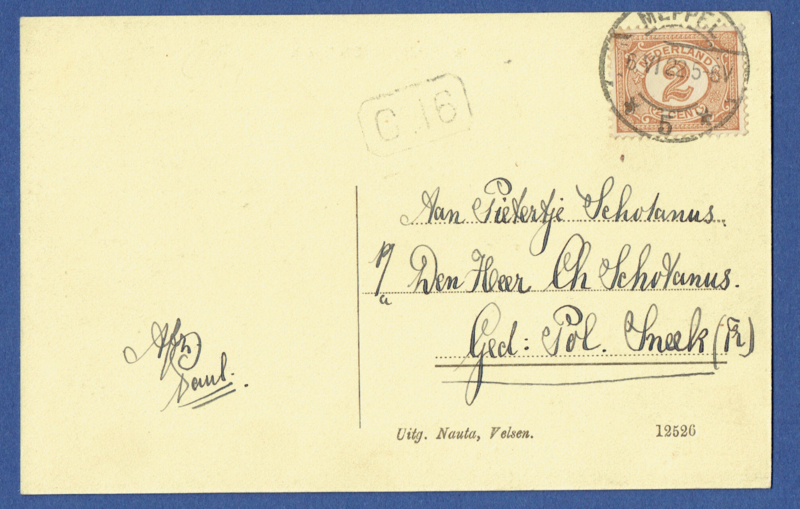 MEPPEL
6.VI 22.5-6V
5
NEDERLAND
2
CENT
C.16
Aan Pietertje Schotanus.
P/a Den Heer Ch Schotanus.
Ged: Pol. Sneek (Fr)
Afz
Paul.
Uitg. Nauta, Velsen.
12526